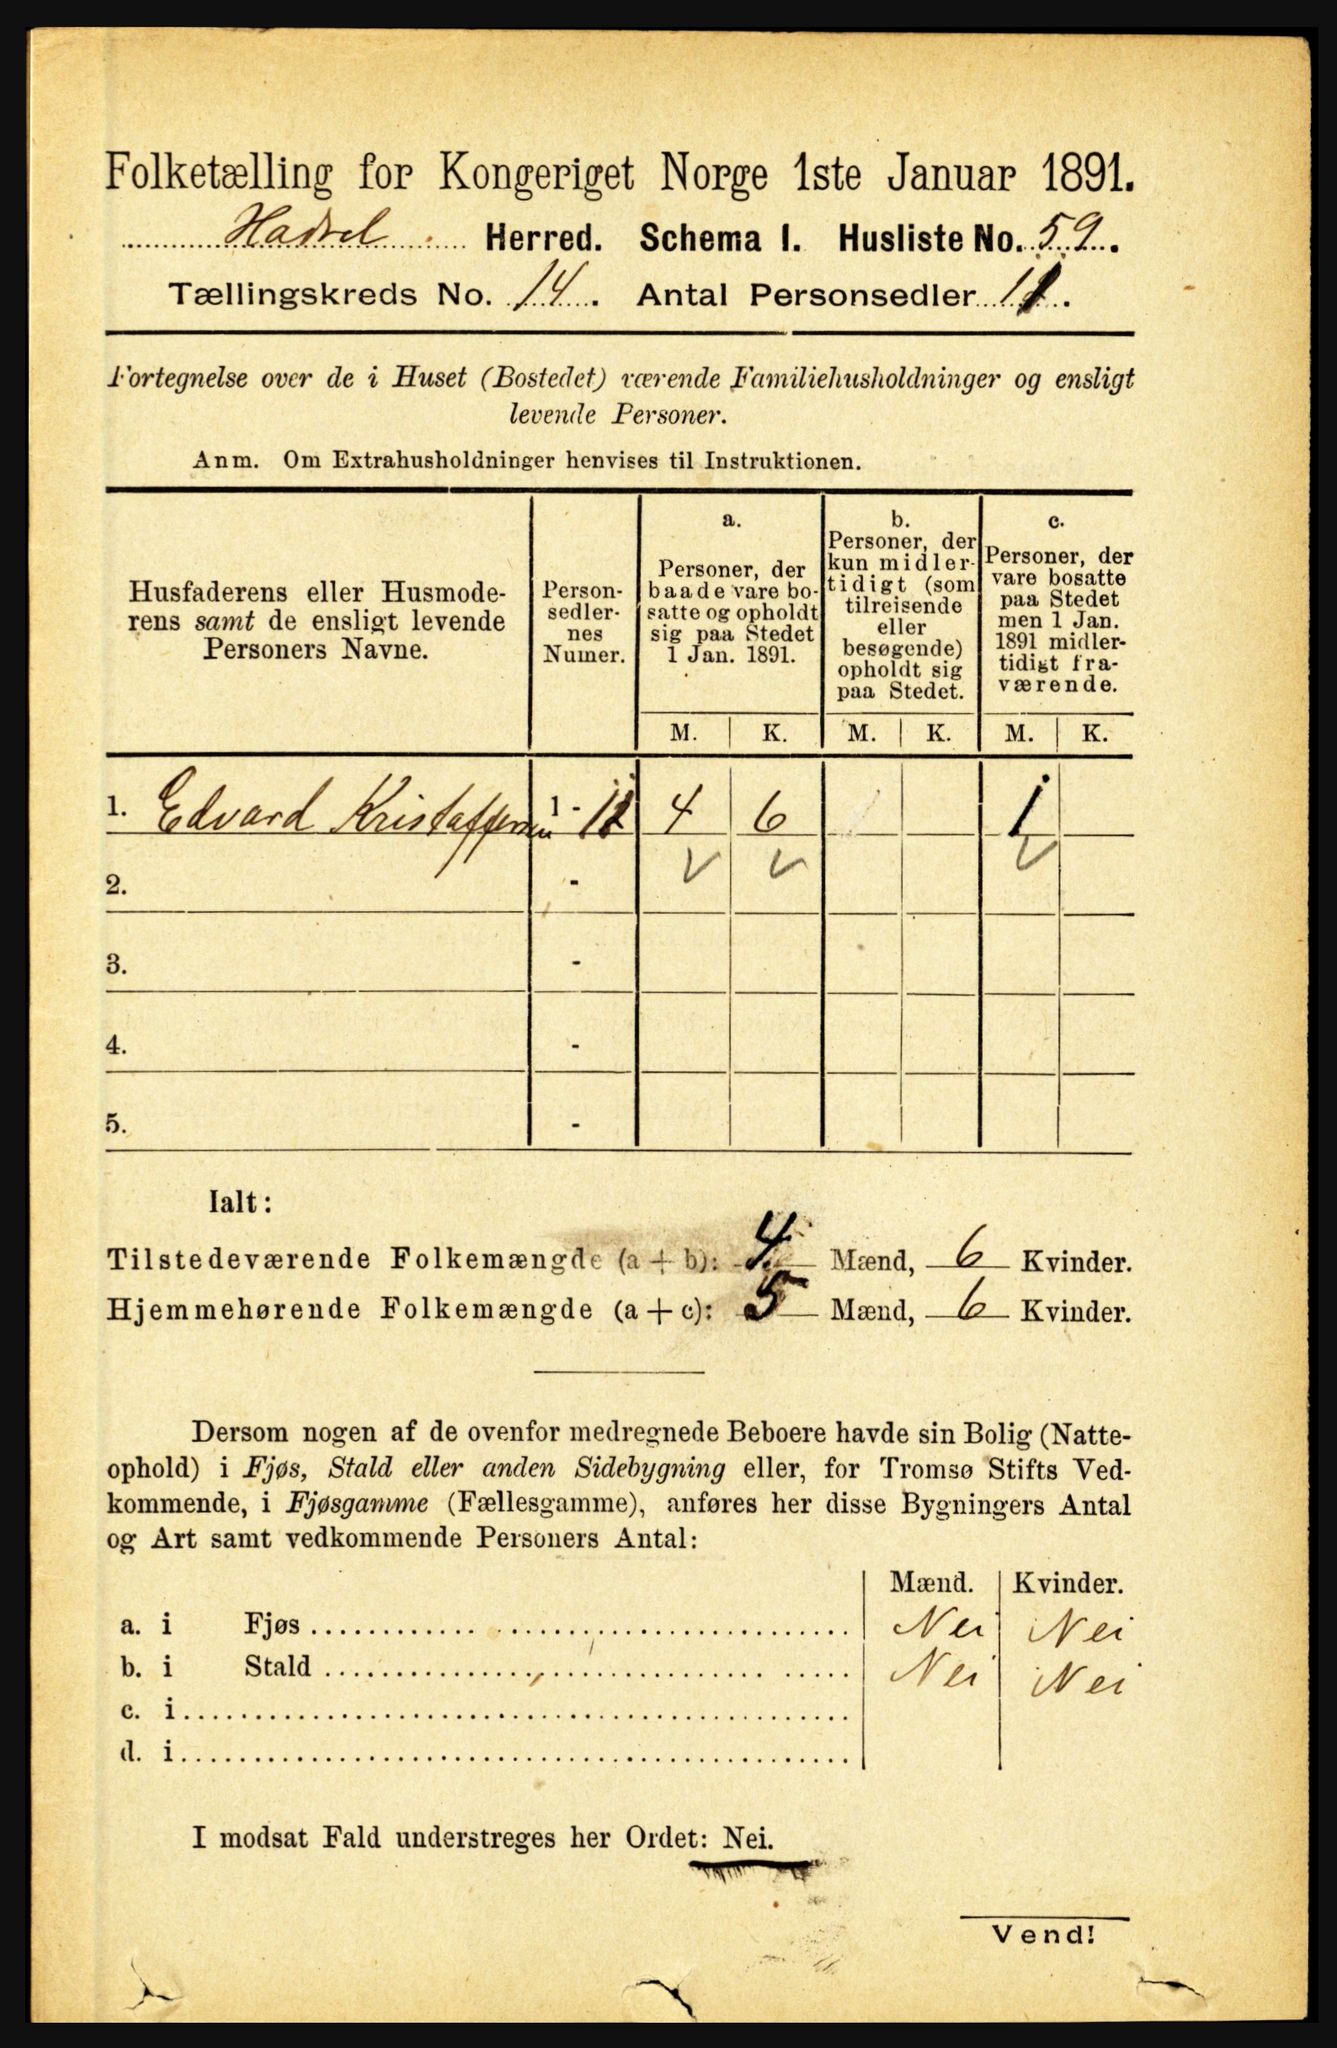 Folketælling for Kongeriget Norge 1ste Januar 1891.
Hadsel Herred. Schema I. Husliste No. 59.
Tællingskreds No. 14. Antal Personsedler 11.
Fortegnelse over de i Huset (Bostedet) værende Familiehusholdninger og ensligt
levende Personer.
Anm. Om Extrahusholdninger henvises til Instruktionen.
Husfaderens eller Husmode-
rens samt de ensligt levende
Personers Navne.
Person-
sedler-
nes
Numer.
a.
Personer, der
baade vare bo-
satte og opholdt
sig paa Stedet
1 Jan. 1891.
b.
Personer, der
kun midler-
tidigt (som
tilreisende
eller
besøgende)
opholdt sig
paa Stedet.
c.
Personer, der
vare bosatte
paa Stedet
men 1 Jan.
1891 midler-
tidigt fra-
værende.
M. K. M. K. M. K.
1. Edvard Kristaffersen 1 - 11 4 6 1
2. -
3. -
4. -
5. -
Ialt:
Tilstedeværende Folkemængde (a + b): 4 Mænd, 6 Kvinder.
Hjemmehørende Folkemængde (a + c): 5 Mænd, 6 Kvinder.
Dersom nogen af de ovenfor medregnede Beboere havde sin Bolig (Natte-
ophold) i Fjøs, Stald eller anden Sidebygning eller, for Tromsø Stifts Ved-
kommende, i Fjøsgamme (Fællesgamme), anføres her disse Bygningers Antal
og Art samt vedkommende Personers Antal:
Mænd. Kvinder.
a. i Fjøs Nei Nei
b. i Stald Nei Nei
c. i
d. i
I modsat Fald understreges her Ordet: Nei.
Vend!